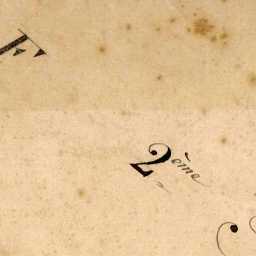 F
2ème